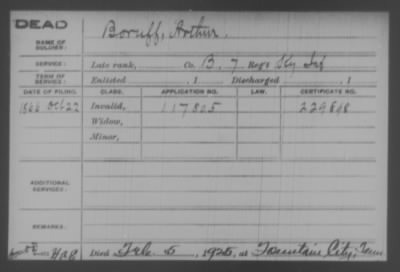 DEAD
NAME OF SOLDIER: Boruff, Arthur.
SERVICE: Late rank, Co. B. 7 Reg't Ky Inf
TERM OF SERVICE: Enlisted , 1 Discharged , 1
DATE OF FILING. CLASS. APPLICATION NO. LAW. CERTIFICATE NO.
1866 Oct 22 Invalid, 117825 229848
Widow,
Minor,
ADDITIONAL SERVICES:
REMARKS:
Died Feb. 5, 1925, at Fountain City, Tenn